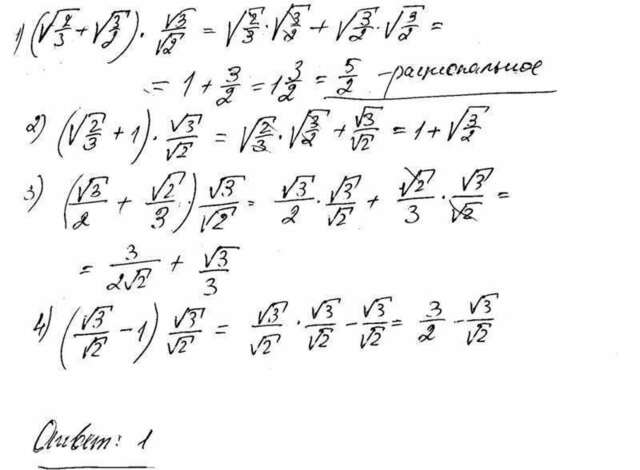 1) (√(2/3) + √(3/2)) · √3/√2 = √(2/3) · √(3/2) + √(3/2) · √(3/2) =
= 1 + 3/2 = 1 3/2 = 5/2 - рациональное
2) (√(2/3) + 1) · √3/√2 = √(2/3) · √(3/2) + √3/√2 = 1 + √(3/2)
3) (√3/2 + √2/3) · √3/√2 = √3/2 · √3/√2 + √2/3 · √3/√2 =
= 3/(2√2) + √3/3
4) (√3/√2 - 1) √3/√2 = √3/√2 · √3/√2 - √3/√2 = 3/2 - √3/√2
Ответ: 1